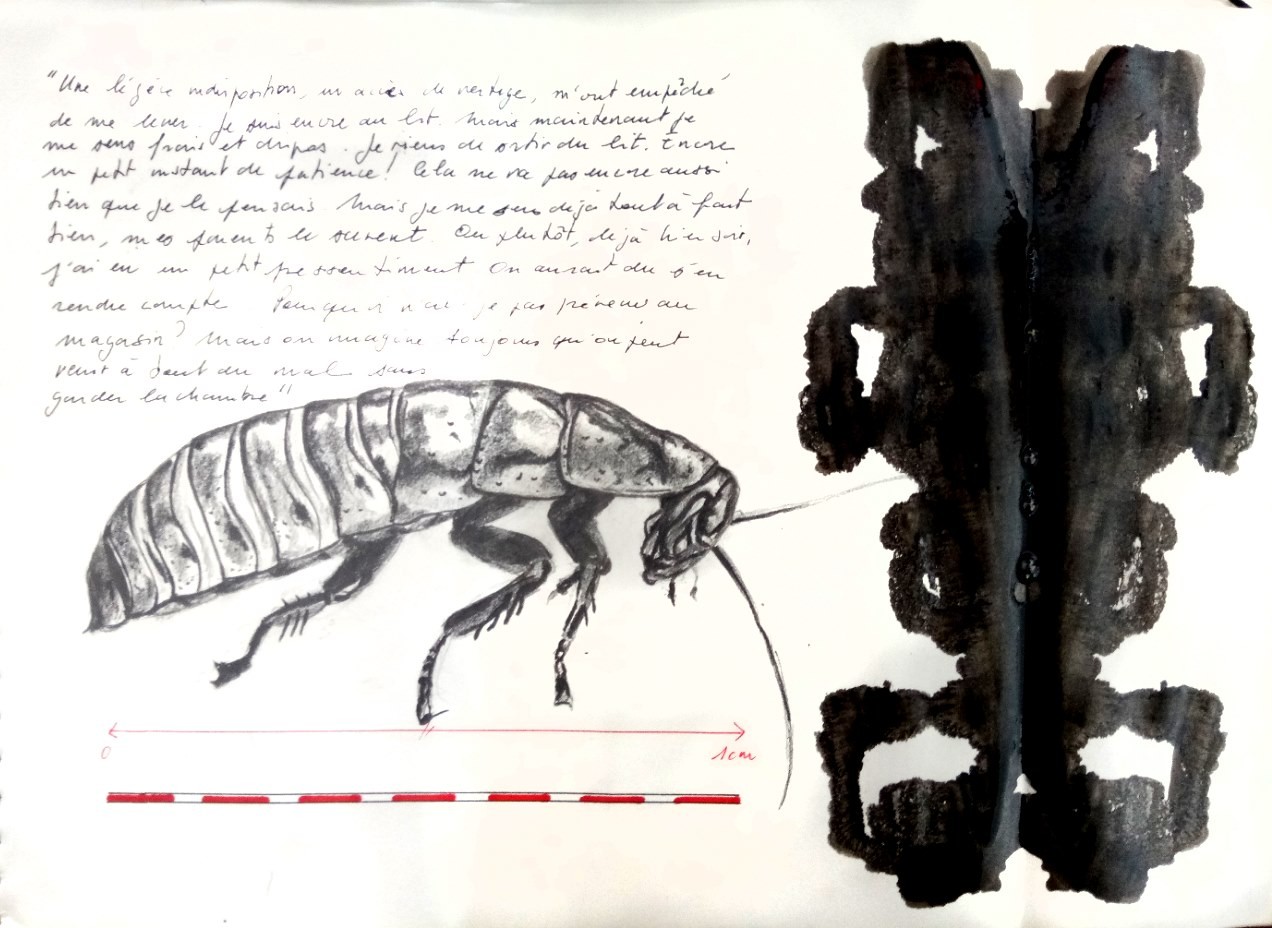 "Une légère indisposition, un accès de vertige, m'ont empêché
de me lever. Je suis encore au lit. Mais maintenant je
me sens frais et dispos. Je viens de sortir du lit. Encore
un petit instant de patience! Cela ne va pas encore aussi
bien que je le pensais. Mais je me sens déjà tout à fait
bien, mes parents le savent. Ou plutôt, déjà hier soir,
j'ai eu un petit pressentiment. On aurait du s'en
rendre compte. Pourquoi n'ai-je pas prévenu au
magasin? Mais on imagine toujours qu'on peut
venir à bout du mal sans
garder la chambre"
0
1cm